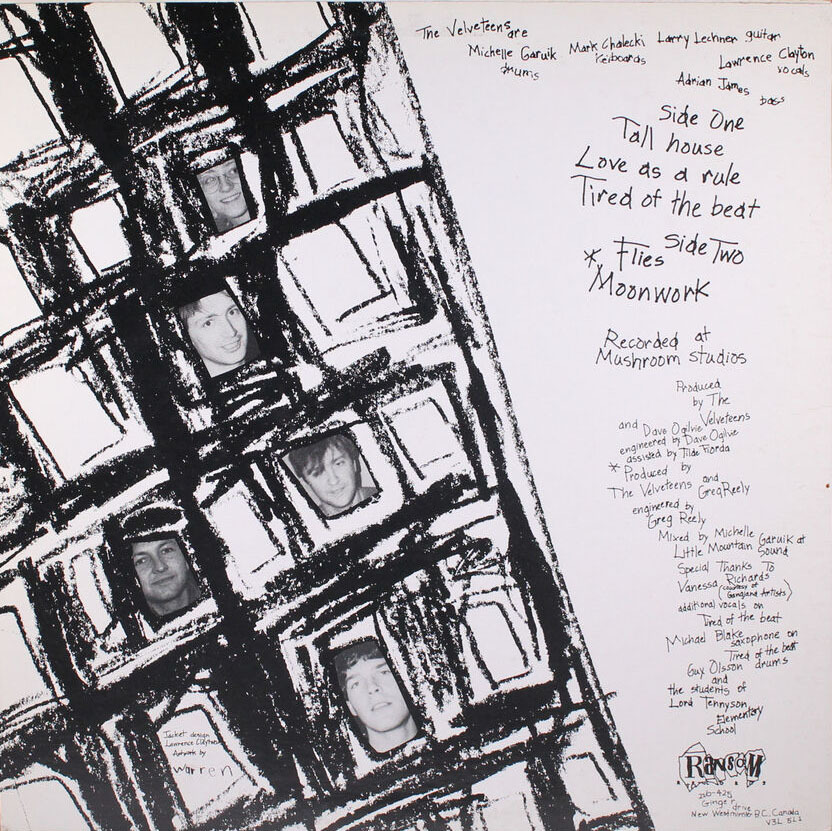 The Velveteens are
Michelle Garuik
drums
Mark Chalecki
Keiboards
Larry Lechner guitar
Lawrence Clayton
vocals
Adrian James
bass
Side One
Tall house
Love as a rule
Tired of the beat
Side Two
* Flies
Moonwork
Recorded at
Mushroom studios
Produced
by The
Velveteens
and Dave Ogilvie
engineered by Dave Ogilvie
assisted by Tilde Fiorda
* Produced by
The Velveteens and
Greg Reely
engineered by
Greg Reely
Mixed by Michelle Garuik at
Little Mountain Sound
Special Thanks To
Vanessa Richards
(courtesy of
Gangland Artists)
additional vocals on
Tired of the beat
Michael Blake saxophone on
Tired of the beat
Guy Olsson drums
and
the students of
Lord Tennyson
Elementary
School
Jacket design
Lawrence Clayton
Artwork by
Warren
RANSOM
Ginger Drive
New Westminster B.C. Canada
V3L 5L1